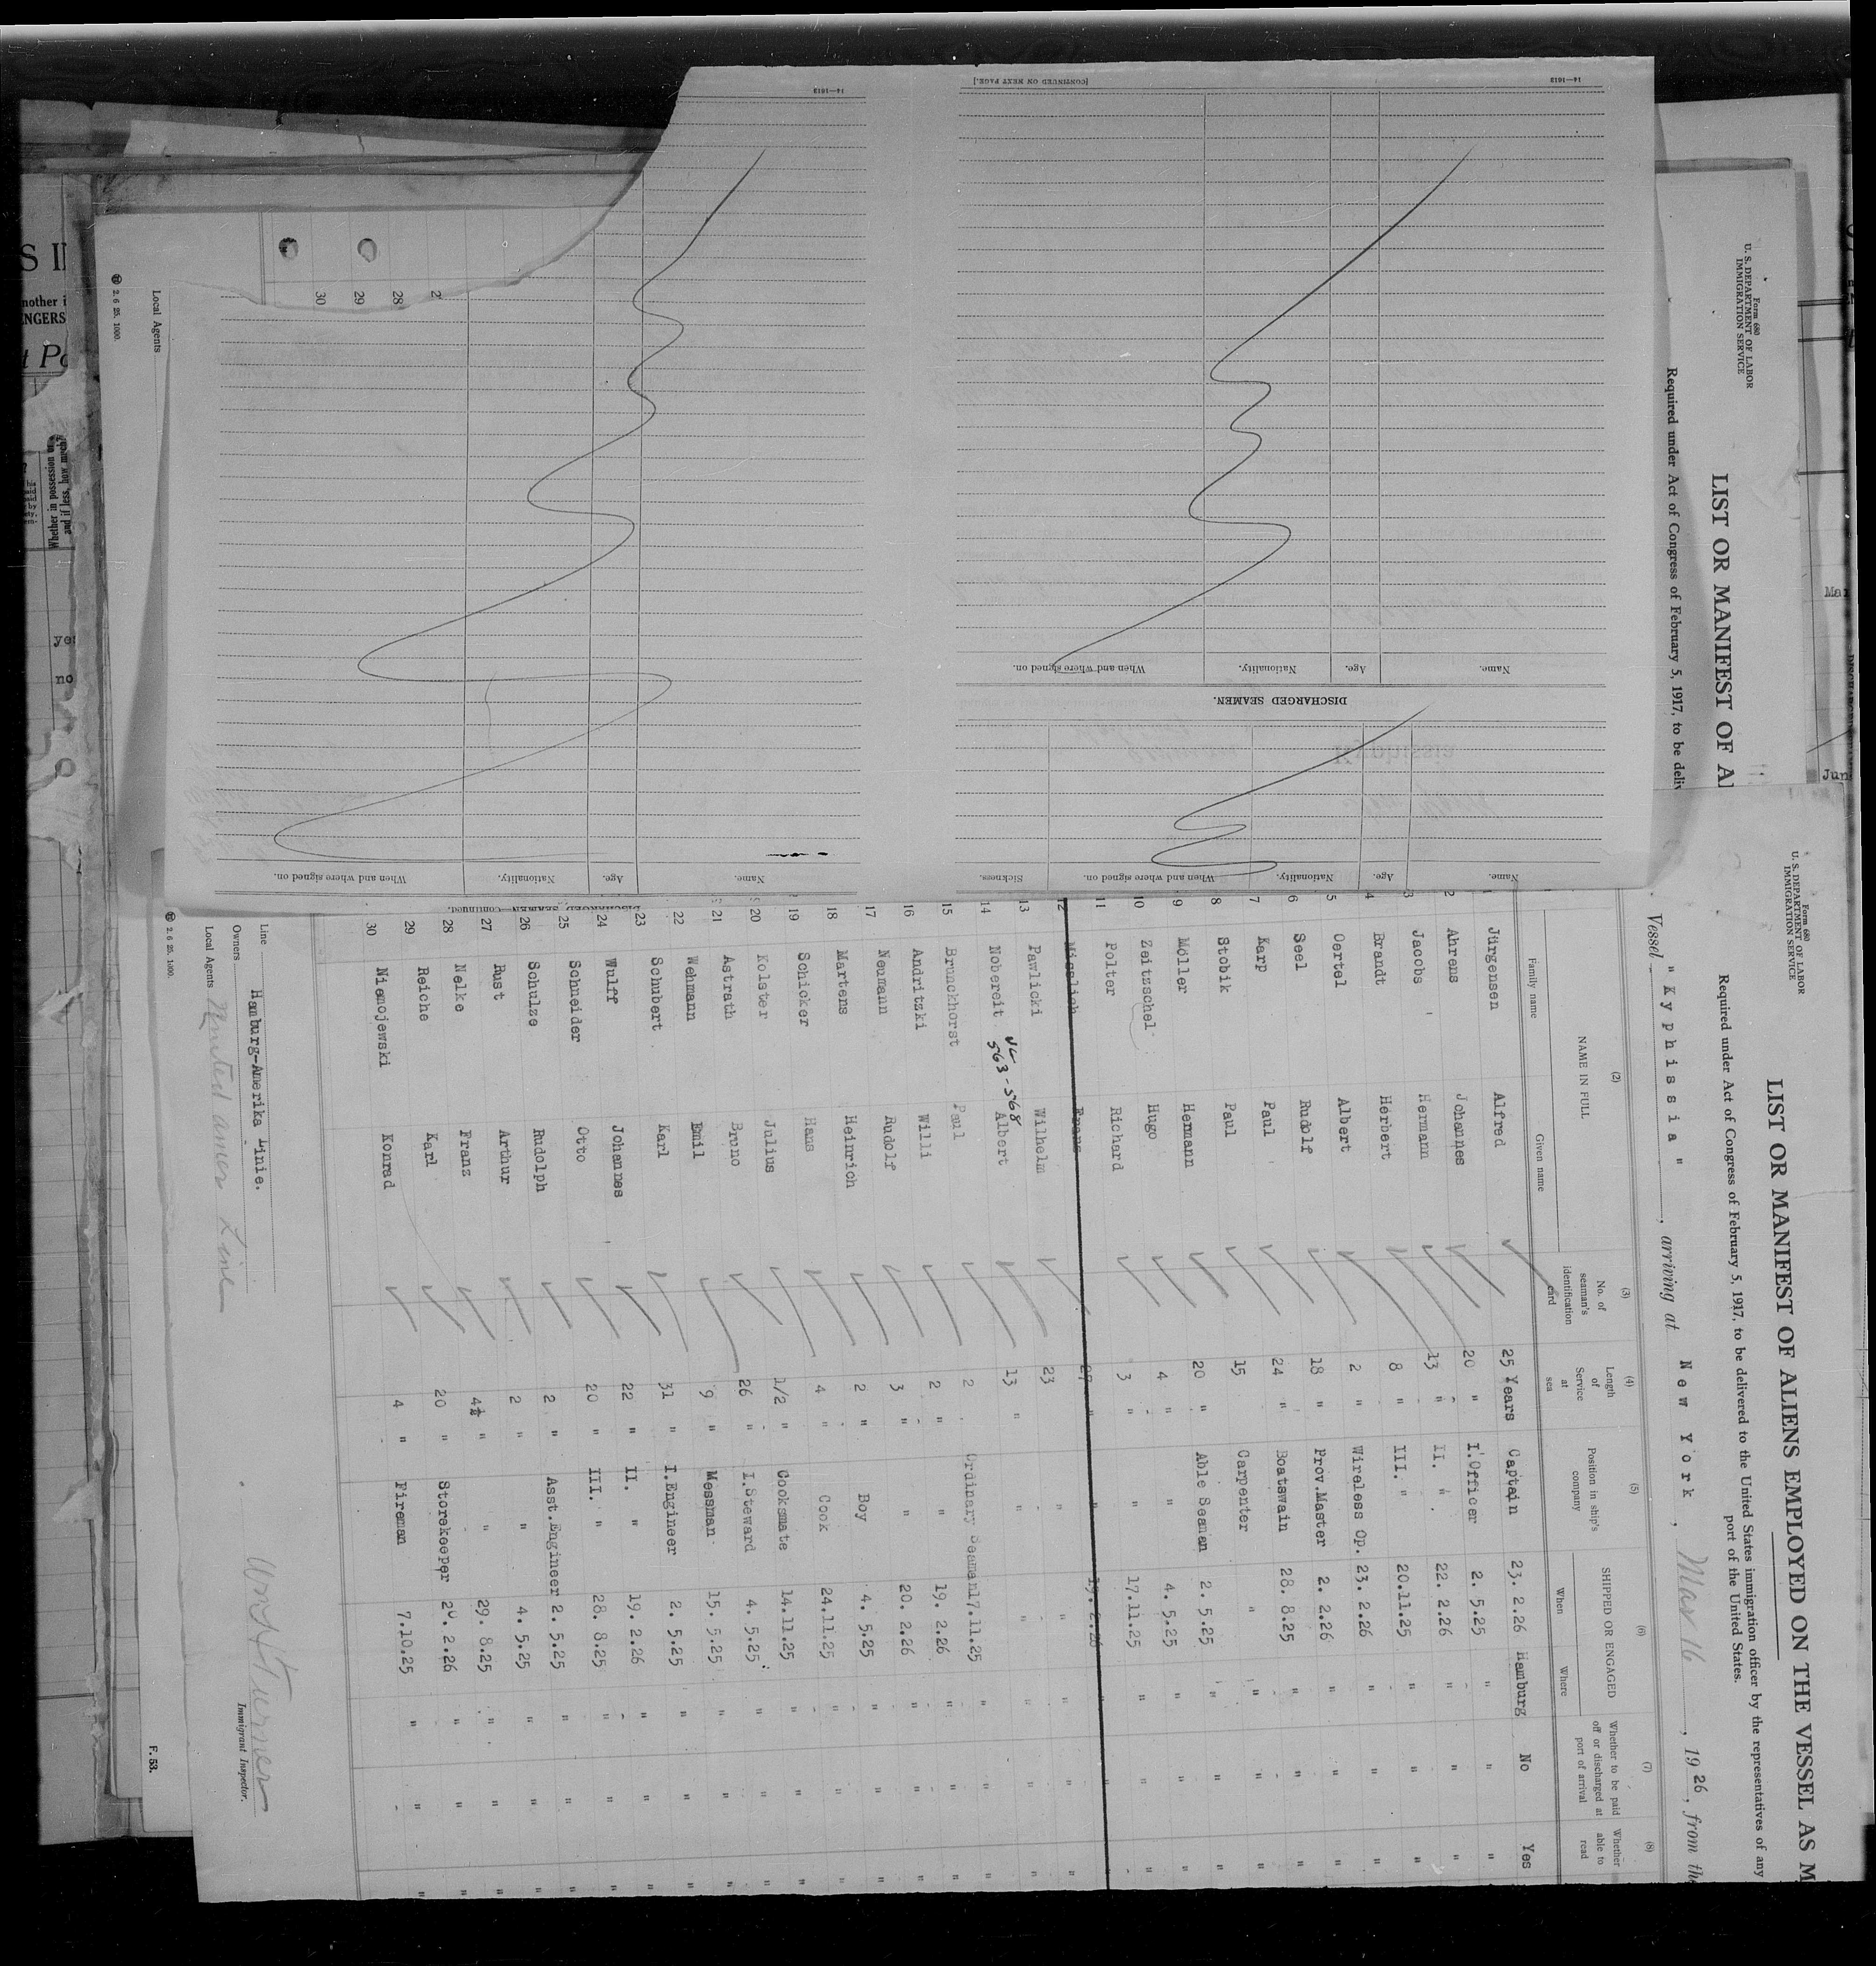 Form 680
U. S. DEPARTMENT OF LABOR
IMMIGRATION SERVICE
LIST OR MANIFEST OF ALIENS EMPLOYED ON THE VESSEL AS M
Required under Act of Congress of February 5, 1917, to be delivered to the United States immigration officer by the representatives of any
port of the United States.
Vessel "Kyphissia", arriving at New York, Mar 16, 1926, from the
(2) (3) (4) (5) (6) (7) (8)
NAME IN FULL No. of seaman's identification card Length of Service at sea Position in ship's company SHIPPED OR ENGAGED Whether to be paid off or discharged at port of arrival Whether able to read
Family name Given name When Where
1 Jürgensen Alfred 25 Years Captain 23. 2.26 Hamburg No Yes
2 Ahrens Johannes 20 " I.Officer 2. 5.25 " " "
3 Jacobs Hermann 13 " II. " 22. 2.26 " " "
4 Brandt Herbert 8 " III. " 20.11.25 " " "
5 Oertel Albert 2 " Wireless Op. 23. 2.26 " " "
6 Seel Rudolf 18 " Prov.Master 2. 2.26 " " "
7 Karp Paul 24 " Boatswain 28. 8.25 " " "
8 Stobik Paul 15 Carpenter " " " "
9 Möller Hermann 20 " Able Seaman 2. 5.25 " " "
10 Zeitzschel Hugo 4 " " 4. 5.25 " " "
11 Polter Richard 3 " " 17.11.25 " " "
12 Franz 27 " " 19. 2.26 " "
13 Pawlicki Wilhelm 23 " " " " " "
14 Nobereit Albert 13 " " " " " "
563-568
15 Brunckhorst Paul 2 Ordinary Seaman 17.11.25 " " "
16 Andritzki Willi 2 " " 19. 2.26 " " "
17 Neumann Rudolf 3 " " 20. 2.26 " " "
18 Martens Heinrich 2 " Boy 4. 5.25 " " "
19 Schicker Hans 4 " Cook 24.11.25 " " "
20 Kolster Julius 1/2 " Cooksmate 14.11.25 " " "
21 Astrath Bruno 26 " I.Steward 4. 5.25 " " "
22 Wehmann Emil 9 " Messman 15. 5.25 " " "
23 Schubert Karl 31 " I.Engineer 2. 5.25 " " "
24 Wulff Johannes 22 " II. " 19. 2.26 " " "
25 Schneider Otto 20 " III. " 28. 8.25 " " "
26 Schulze Rudolph 2 " Asst.Engineer 2. 5.25 " " "
27 Rust Arthur 2 " " 4. 5.25 " " "
28 Nelke Franz 4½ " " 29. 8.25 " " "
29 Reiche Karl 20 " Storekeeper 20. 2.26 " " "
30 Niemojewski Konrad 4 " Fireman 7.10.25 " " "
Line Hamburg-Amerika Linie.
Owners
Local Agents United Amer Line
Immigrant Inspector.
2 6 25. 1000.
F. 53.
Form 680
U. S. DEPARTMENT OF LABOR
IMMIGRATION SERVICE
LIST OR MANIFEST OF AL
Required under Act of Congress of February 5, 1917, to be deliv
Local Agents
2 6 25. 1000.
28
29
30
Name. Age. Nationality. When and where signed on. Sickness.
DISCHARGED SEAMEN.
Name. Age. Nationality. When and where signed on.
[CONTINUED ON NEXT PAGE.]
14—1613
DISCHARGED SEAMEN—Continued.
Name. Age. Nationality. When and where signed on.
14—1613
S I
NGERS
Whether in possession
and if less, how much
yes
no
Mar
Jun